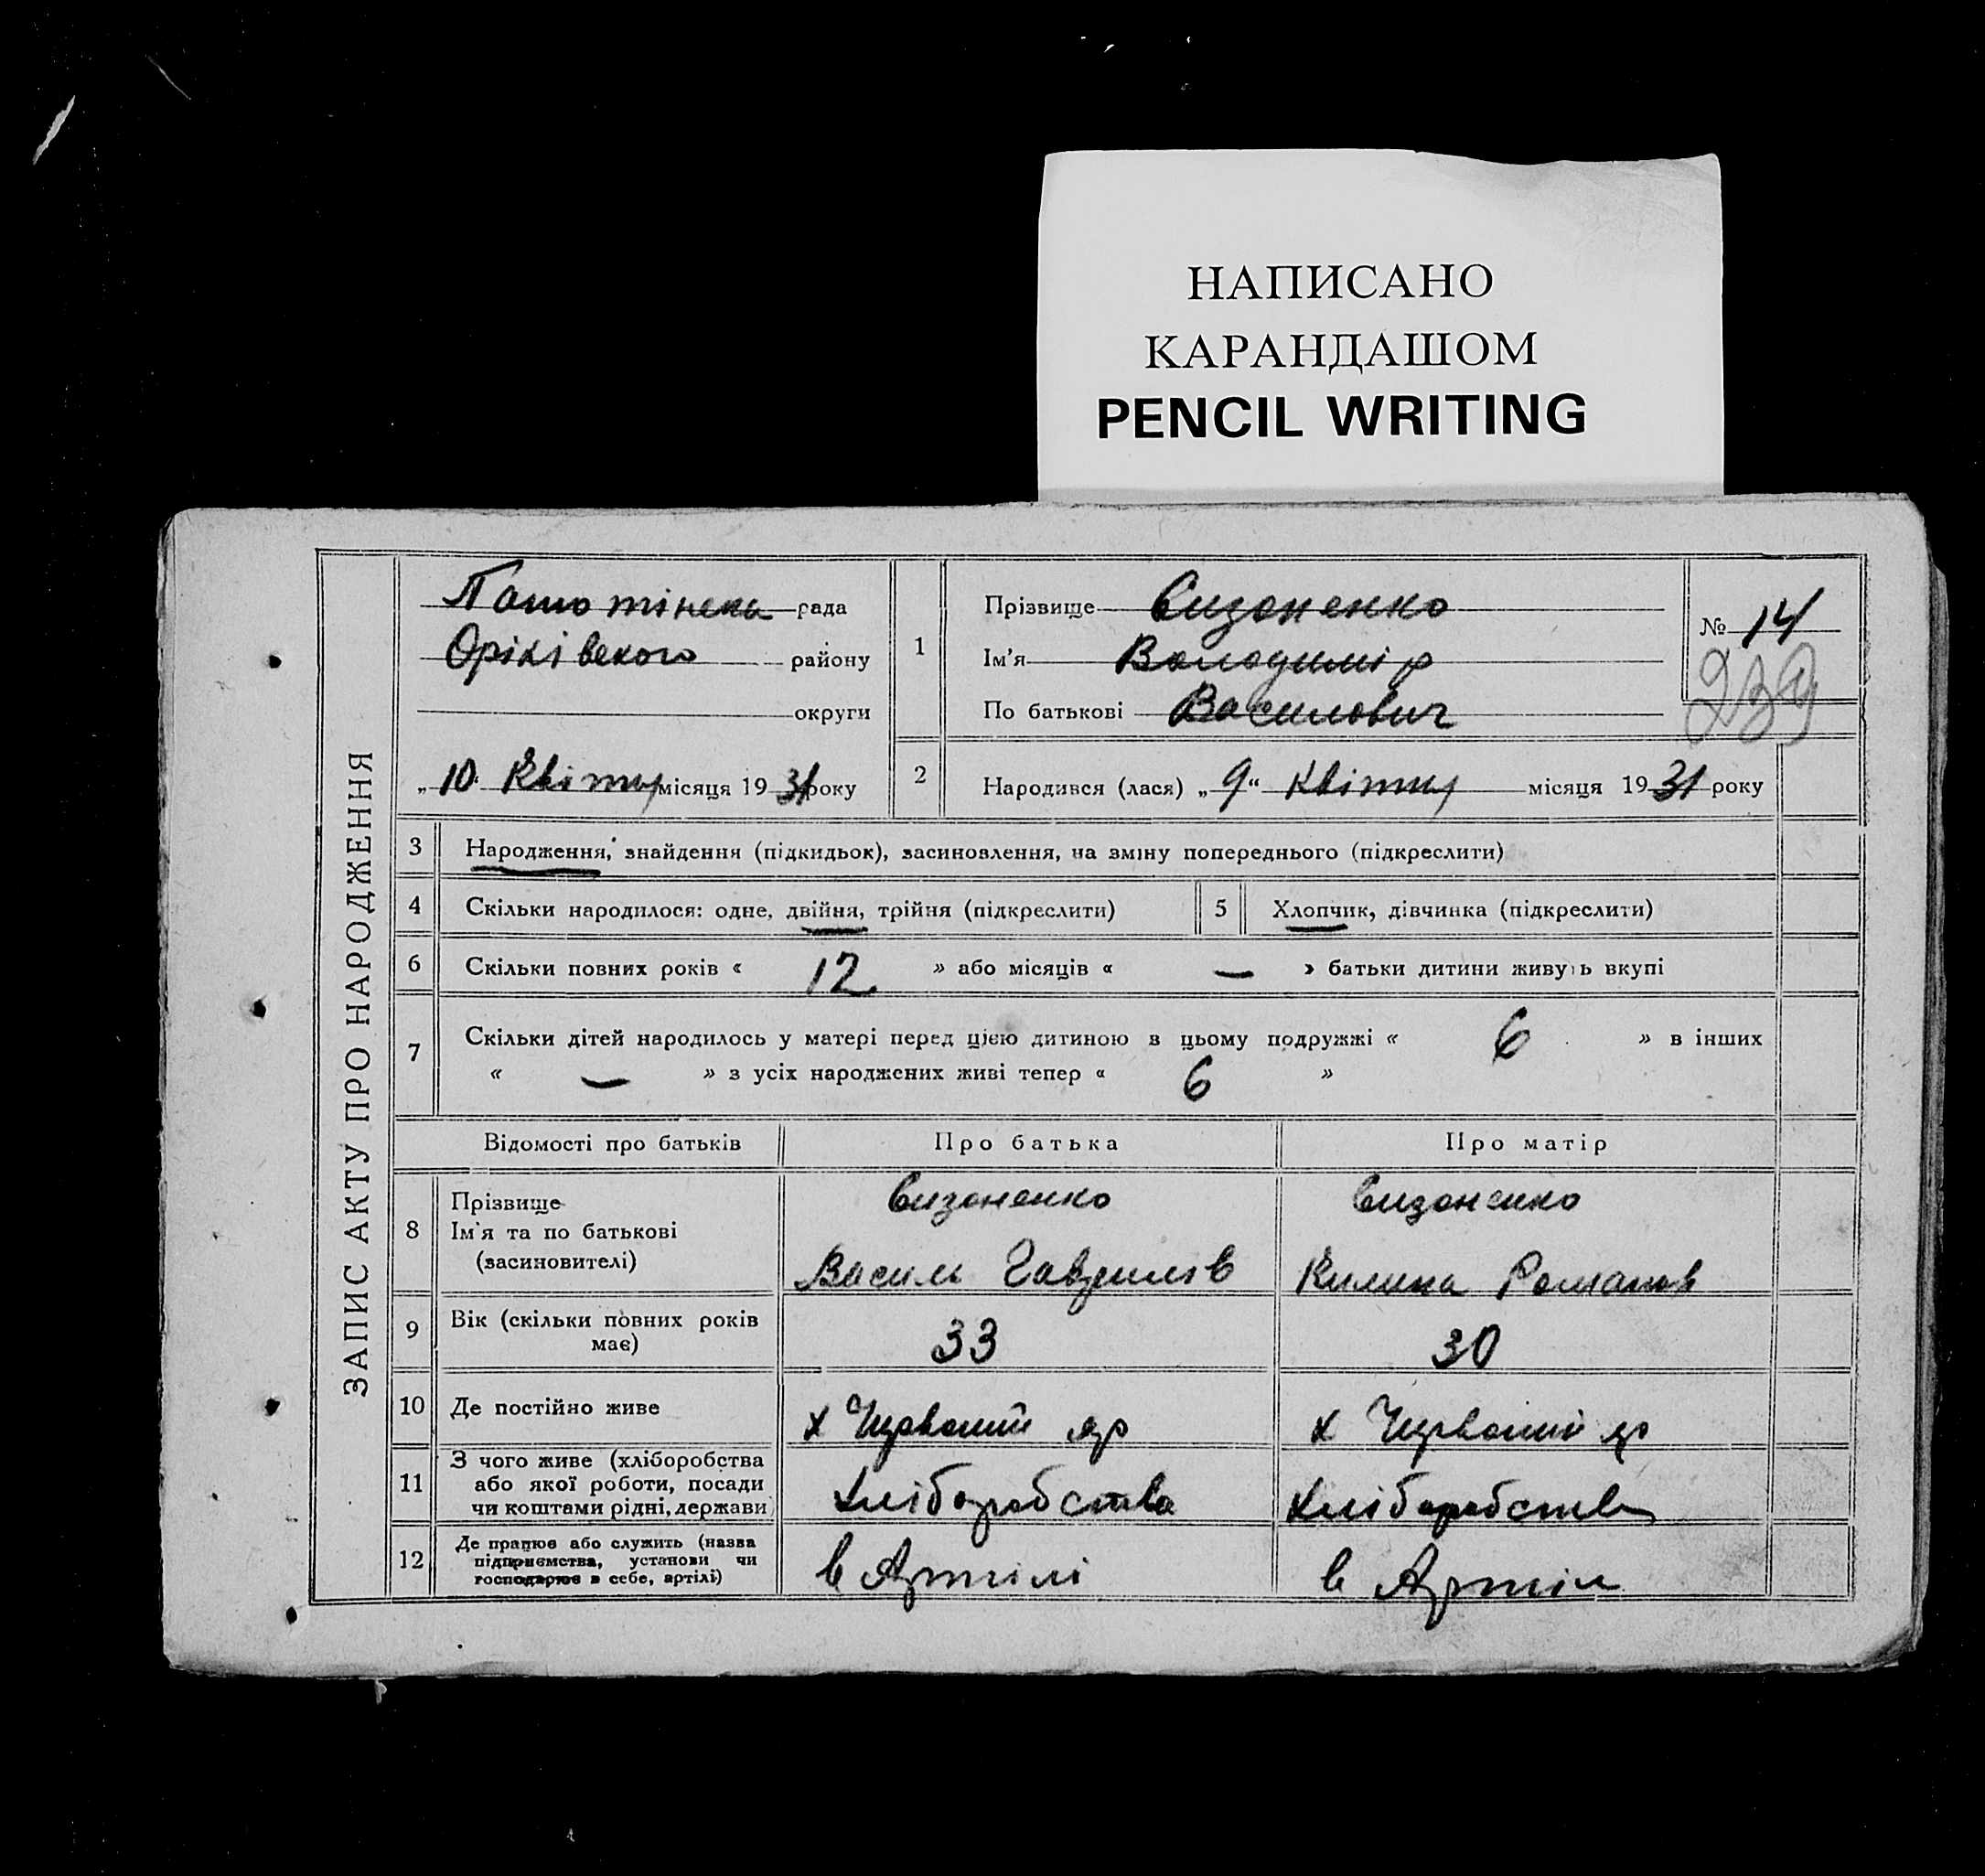 НАПИСАНО
КАРАНДАШОМ
PENCIL WRITING
ЗАПИС АКТУ ПРО НАРОДЖЕННЯ
рада
Оріхівського району
округи
„ 10 Квітня місяця 19 31 року
1
Прізвище Сизоненко
Ім'я Володимір
По батькові Василович
№ 14
239
2
Народився (лася) „ 9 “ Квітня місяця 19 31 року
3 Народження, знайдення (підкидьок), засиновлення, на зміну попереднього (підкреслити)
4 Скільки народилося: одне, двійня, трійня (підкреслити) 5 Хлопчик, дівчинка (підкреслити)
6 Скільки повних років « 12 » або місяців « — » батьки дитини живуть вкупі
7 Скільки дітей народилось у матері перед цією дитиною в цьому подружжі « 6 » в інших
« — » з усіх народжених живі тепер « 6 »
Відомості про батьків Про батька Про матір
8 Прізвище Сизоненко Сизоненко
Ім'я та по батькові
(засиновителі) Василь Гаврилов Килина Романов
9 Вік (скільки повних років
має) 33 30
10 Де постійно живе х Червоний яр х Червоний яр
11 З чого живе (хліборобства
або якої роботи, посади
чи коштами рідні, держави) хліборобства хліборобства
12 Де працює або служить (назва
підприємства, установи чи
господарює в себе, артілі) в Артілі в Артіл